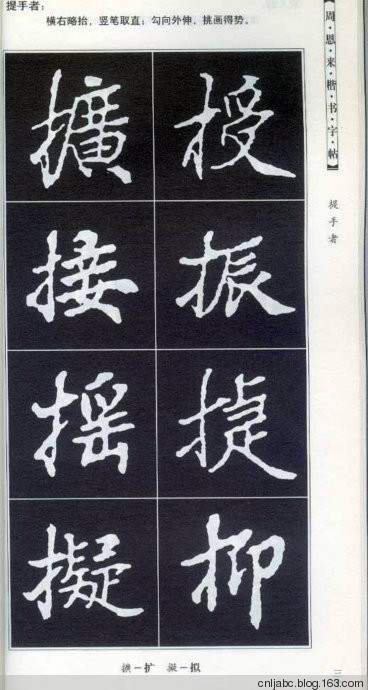 提手者:
横右略抬, 竖笔取直; 勾向外伸, 挑画得势。
【周·恩·来·楷·书·字·帖】
提手者
授 擴
振 接
捷 摇
抑 擬
擴－扩 擬－拟
三
cnljabc.blog.163.com